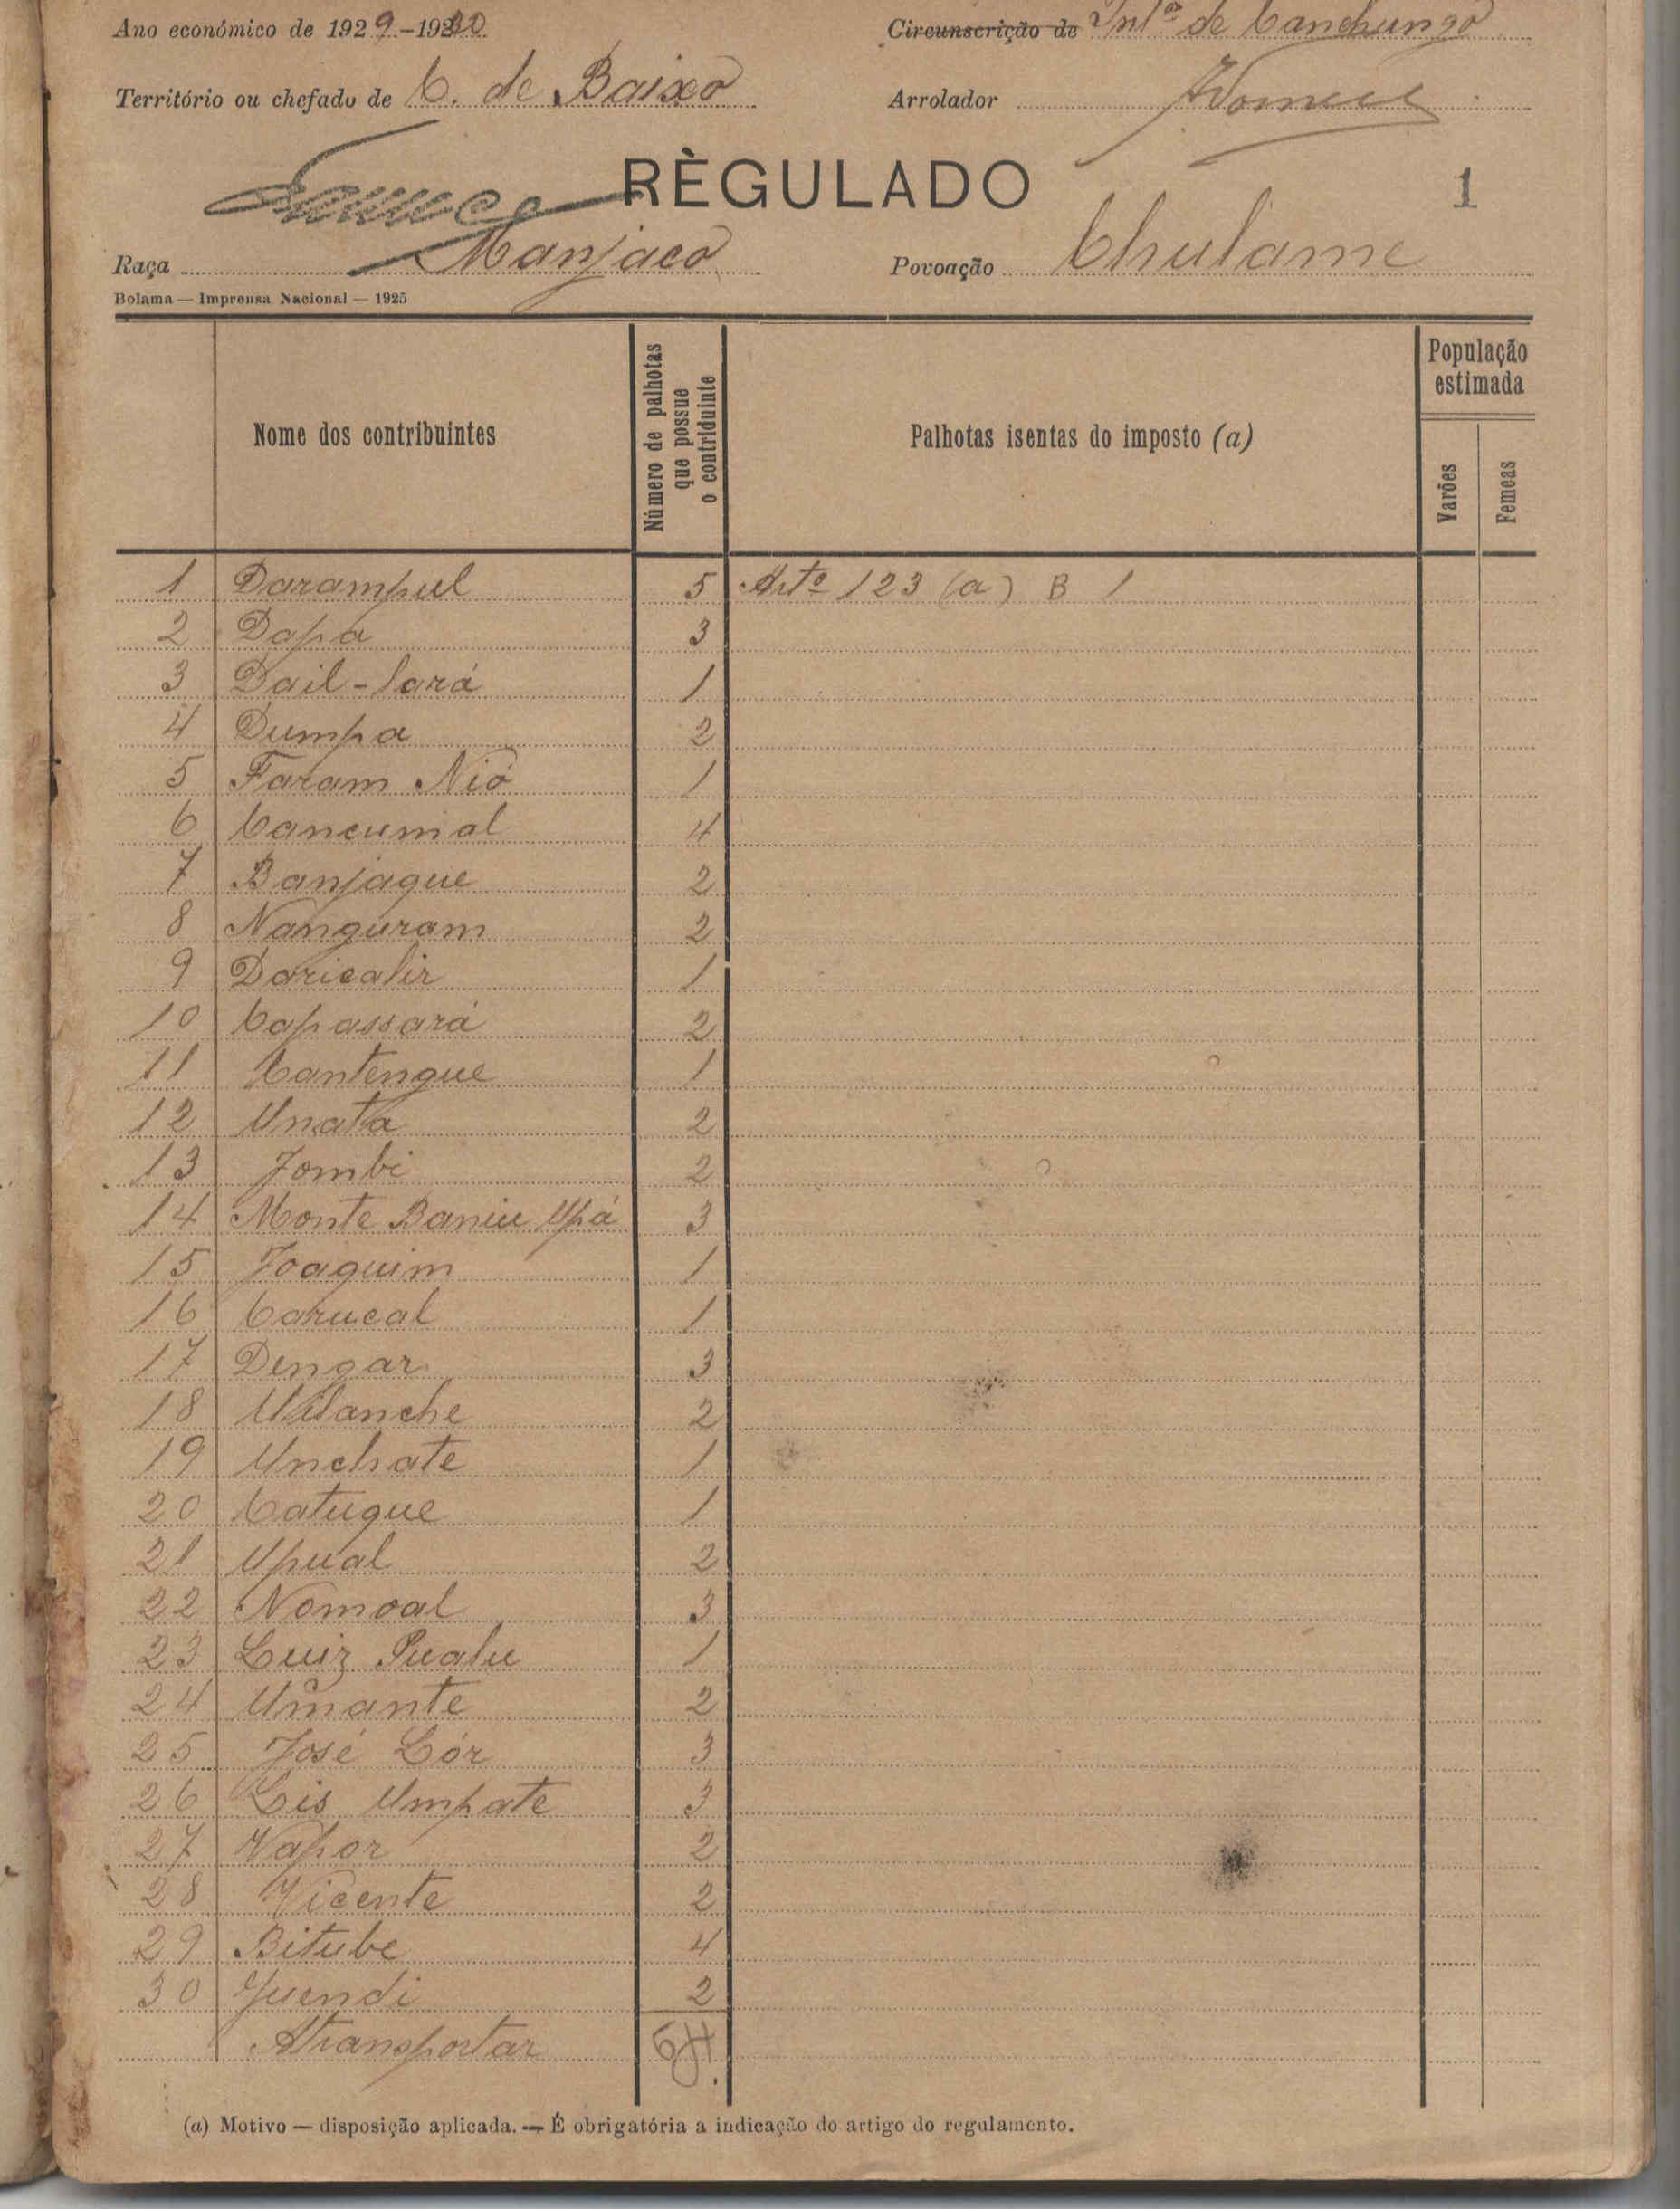 Ano económico de 1929-1930 Circunscrição de Intª de Canchungo
Território ou chefado de C. de Baixo Arrolador
RÈGULADO 1
Raça Manjaco Povoação Chulame
Bolama — Imprensa Nacional — 1925
Nome dos contribuintes
Número de palhotas
que possue
o contriduinte
Palhotas isentas do imposto (a)
População
estimada
Varões
Femeas
1 Darampul 5 Artº 123 (a) B 1
2 Dapa 3
3 Dail-lará 1
4 Dumpa 2
5 Faram Nió 1
6 Cancumal 4
7 Banjaque 2
8 Nanguram 2
9 Daricalir 1
10 Capassará 2
11 Cantengue 1
12 Unata 2
13 Jombi 2
14 Monte Baniu Upá 3
15 Joaquim 1
16 Carucal 1
17 Dengar 3
18 2
19 Unchate 1
20 Catuque 1
21 Upual 2
22 Nomoal 3
23 Luiz Pualu 1
24 Umante 2
25 José Lór 3
26 Lis Umpate 3
27 Vapor 2
28 Vicente 2
29 Bitube 4
30 Quendi 2
A transportar 64
(a) Motivo — disposição aplicada. — É obrigatória a indicação do artigo do regulamento.